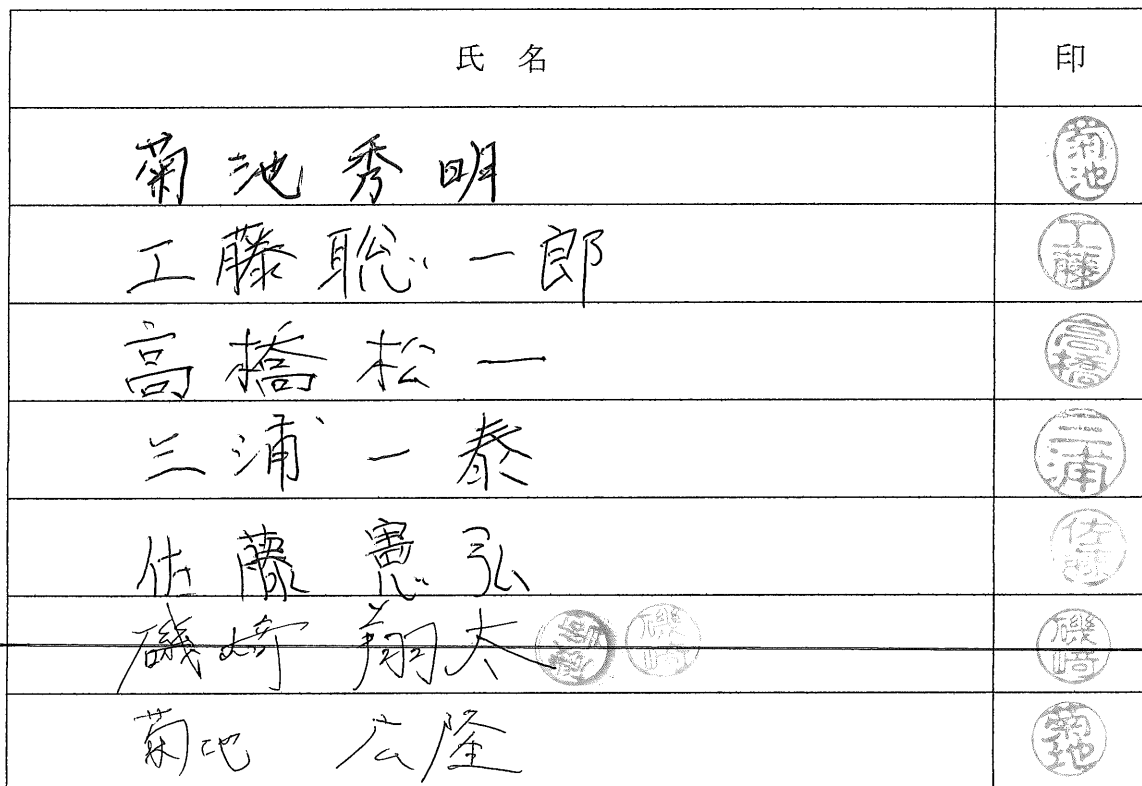 氏 名 印
菊池秀明 菊池
工藤聡一郎 工藤
高橋松一 高橋
三浦一泰 三浦
佐藤憲弘 佐藤
磯﨑翔太 磯﨑 磯﨑
菊地 広隆 菊地